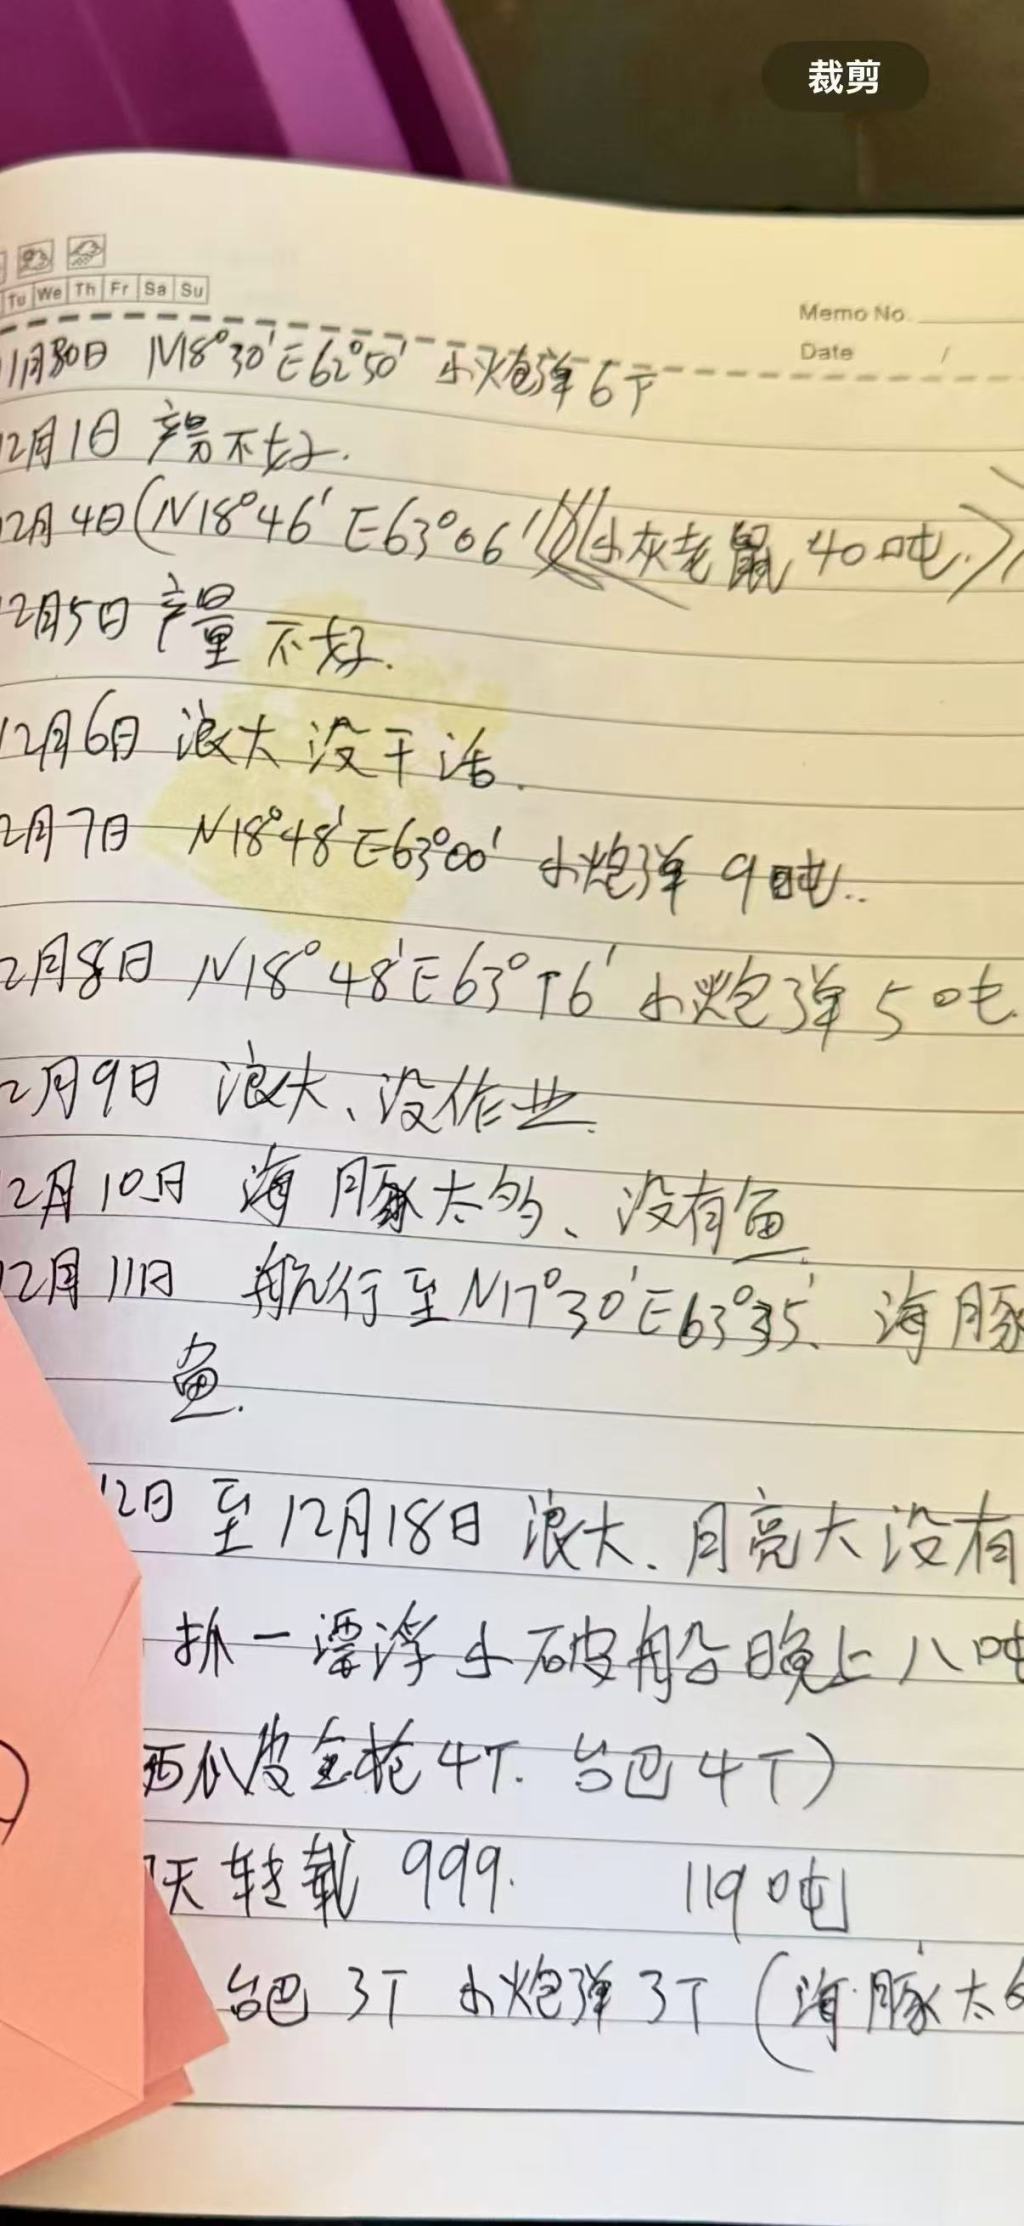 裁剪
Tu We Th Fr Sa Su
Memo No.
Date /
11月30日 N18°30′E62°50′ 小炮弹6T
12月1日 产量不好.
12月4日(N18°46′E63°06′ 小灰老鼠 40吨.)
12月5日 产量不好.
12月6日 浪大没干活.
2月7日 N18°48′E63°00′ 小炮弹 9吨..
2月8日 N18°48′E63°16′ 小炮弹 5吨.
2月9日 浪大、没作业.
12月10日 海豚太多、没有鱼.
12月11日 航行至N17°30′E63°35′、海豚
鱼.
12日至12月18日 浪大、月亮大没有
抓一漂浮小破船晚上八吨
西瓜皮金枪4T. 台巴4T)
天转载 999. 119吨
台巴 3T 小炮弹3T (海豚太多